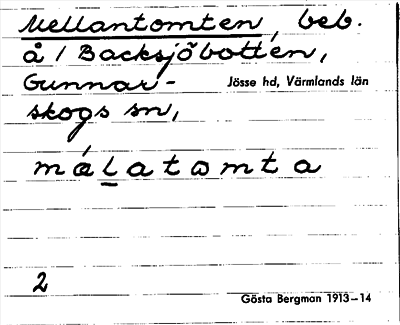 Mellantomten, beb.
å / Backsjöbotten,
Gunnar-
Jösse hd, Värmlands län
skogs sn,
málatomta
2
Gösta Bergman 1913–14